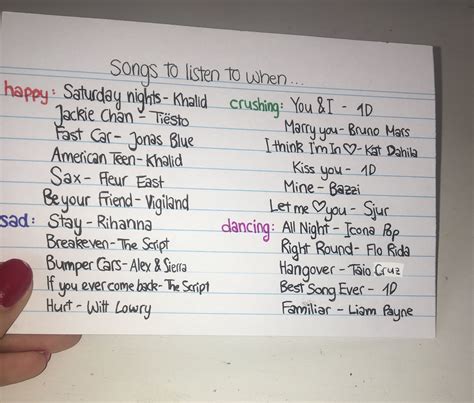 Songs to listen to when...
happy: Saturday nights - Khalid
Jackie Chan - Tiësto
Fast Car - Jonas Blue
American Teen - Khalid
Sax - Fleur East
Be your Friend - Vigiland
sad: Stay - Rihanna
Breakeven - The Script
Bumper Cars - Alex & Sierra
If you ever come back - The Script
Hurt - Witt Lowry
crushing: You & I - 1D
Marry you - Bruno Mars
I think I'm In ♡ - Kat Dahlia
Kiss you - 1D
Mine - Bazzi
Let me ♡ you - Sjur
dancing: All Night - Icona Pop
Right Round - Flo Rida
Hangover - Taio Cruz
Best Song Ever - 1D
Familiar - Liam Payne